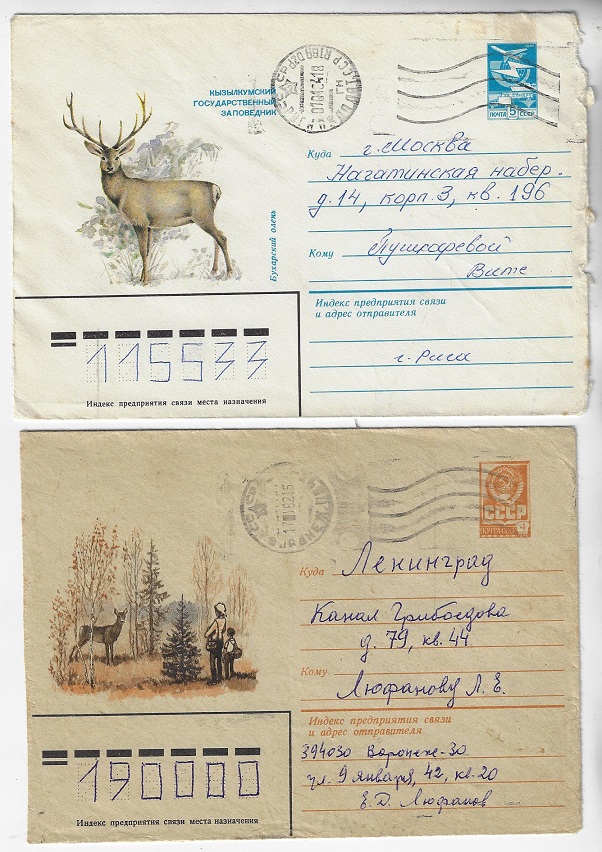 КЫЗЫЛКУМСКИЙ
ГОСУДАРСТВЕННЫЙ
ЗАПОВЕДНИК
Бухарский олень
ПОЧТА 5 СССР
Куда г. Москва
Нагатинская набер.
д. 14, корп. 3, кв. 196
Кому Пушкаревой
Вите
Индекс предприятия связи
и адрес отправителя
г. Рига
115533
Индекс предприятия связи места назначения
СССР
Куда Ленинград
Канал Грибоедова
д. 79, кв. 44
Кому Люфанову Л. Е.
Индекс предприятия связи
и адрес отправителя
394030 Воронеж-30
ул. 9 Января, 42, кв. 20
Е. Д. Люфанов
190000
Индекс предприятия связи места назначения